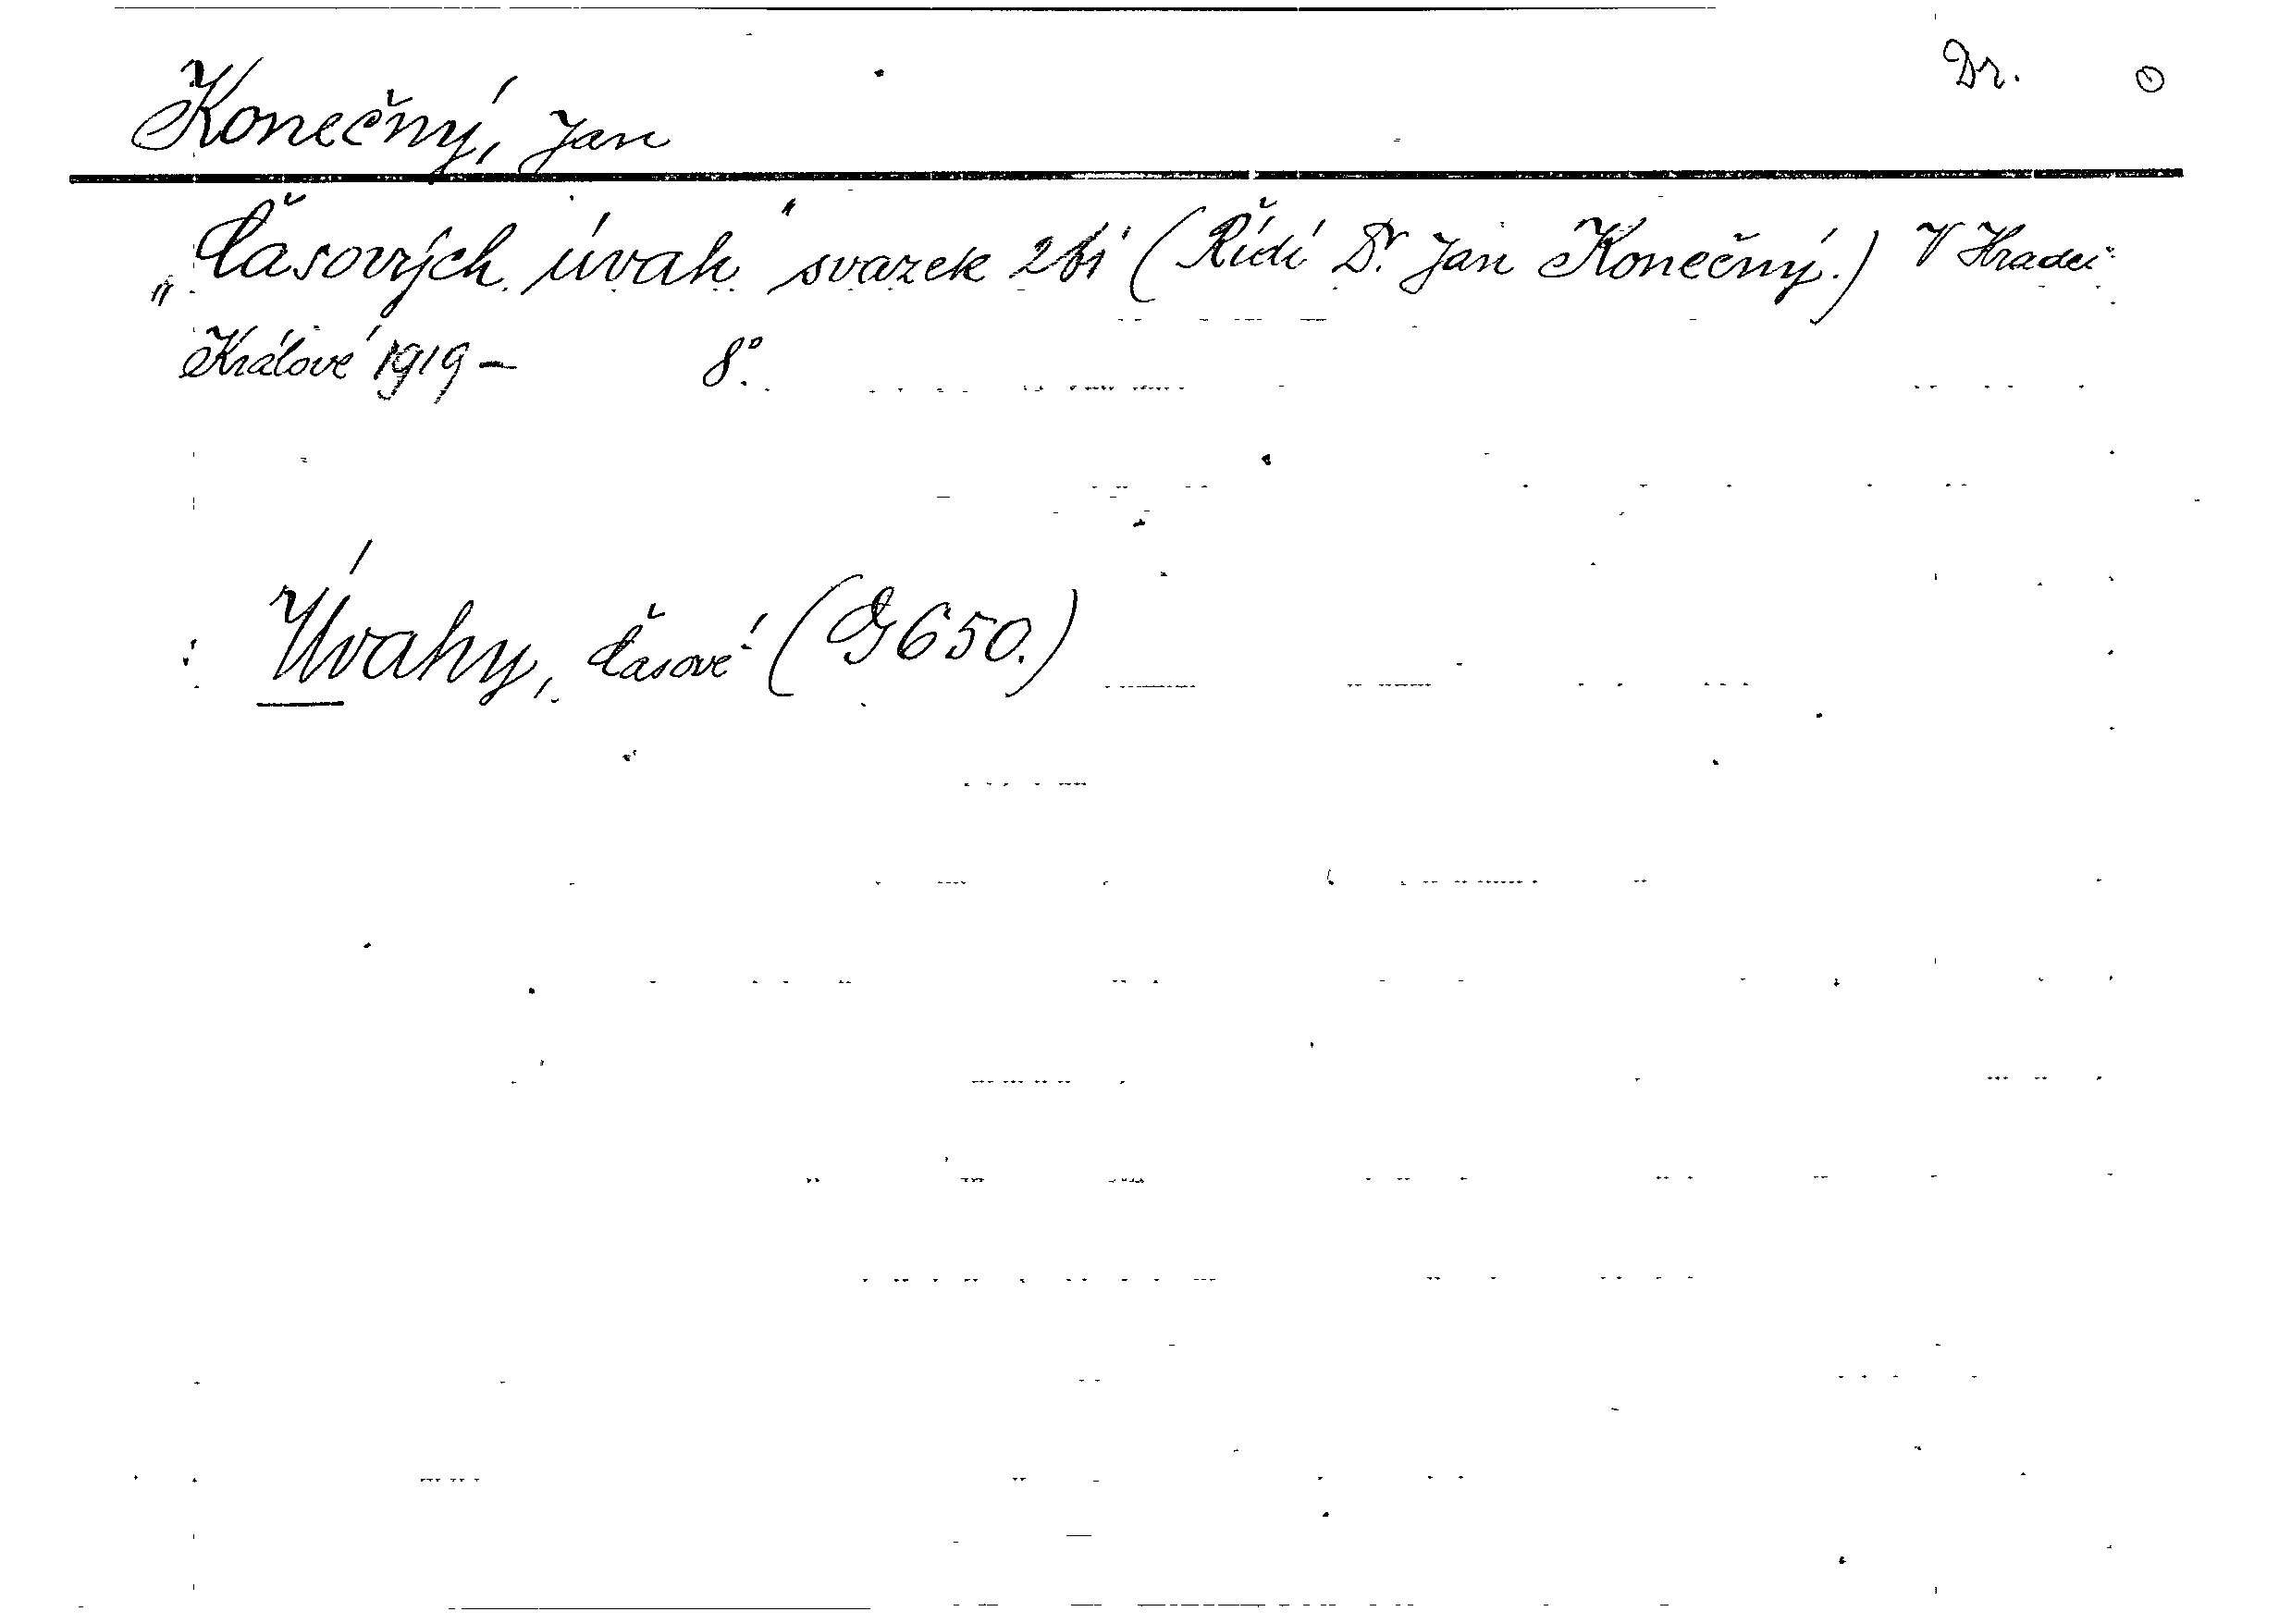 Dr.
Konečný, Jan
„Časových úvah" svazek 261 (Řídí Dr. Jan Konečný.) V Hradci
Králové 1919 – 8°.
Úvahy, časové (G 650.)